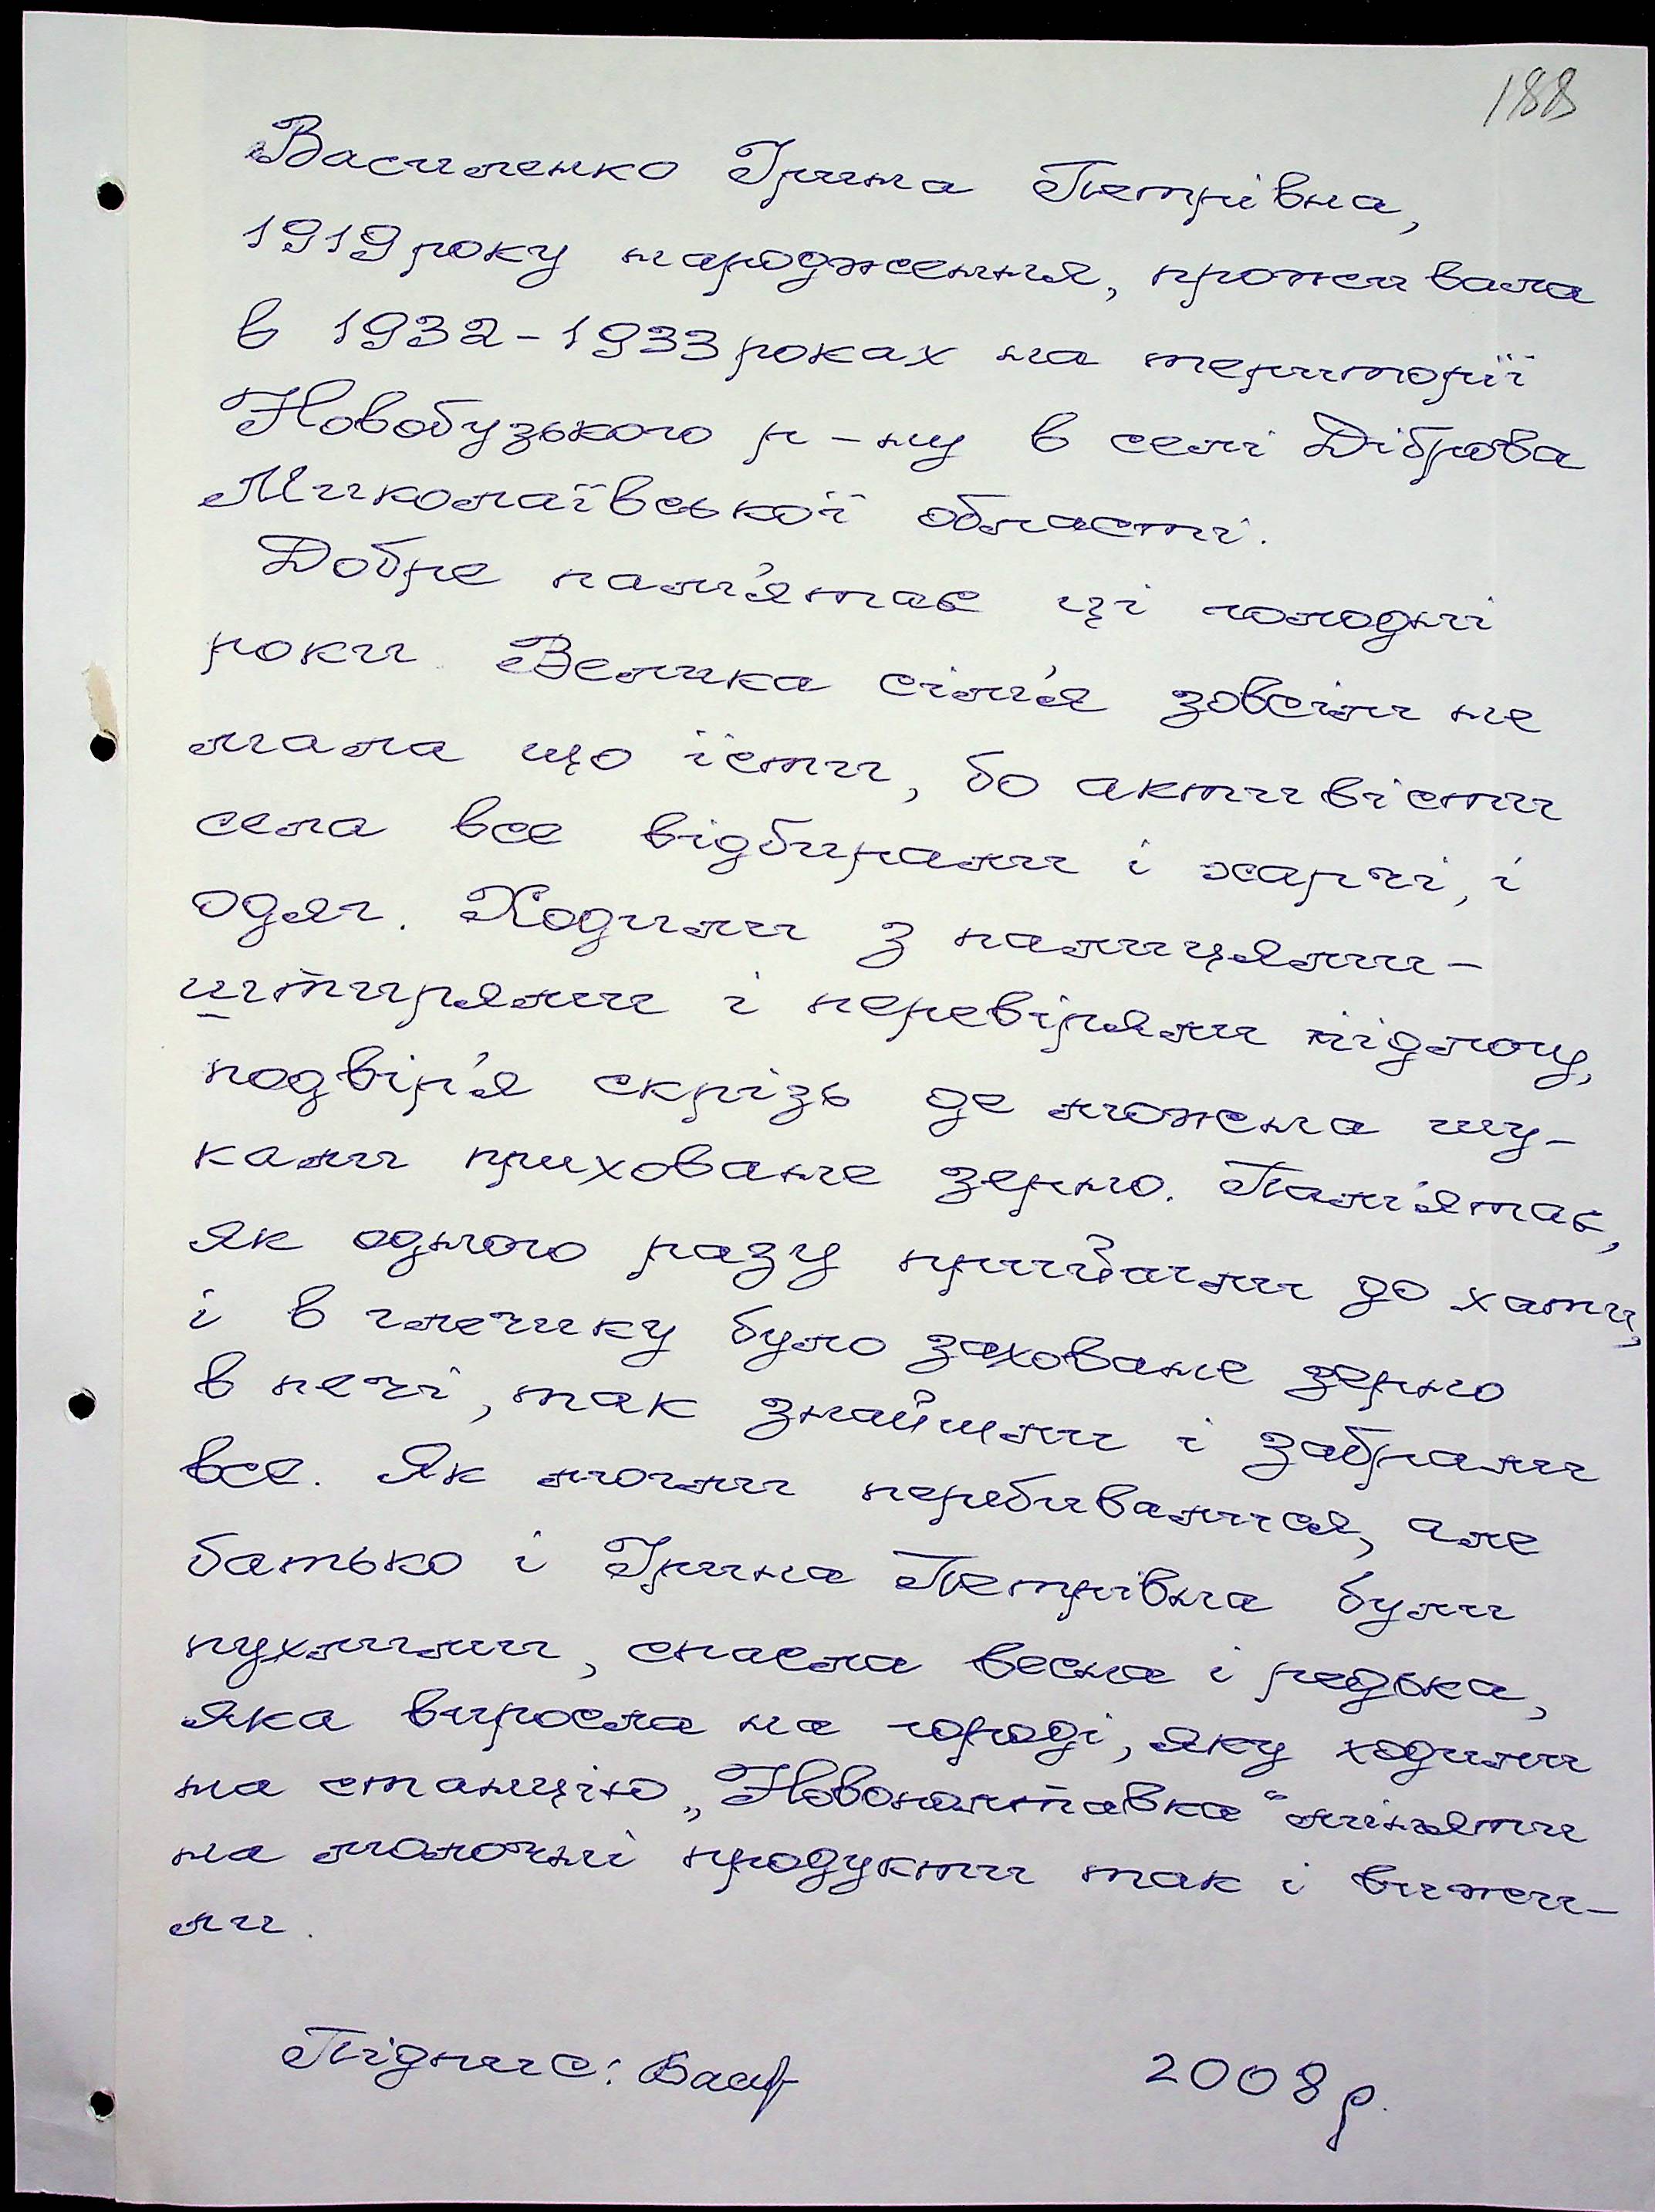 188
Василенко Ірина Петрівна,
1919 року народження, проживала
в 1932-1933 роках на території
Новобузького р-ну в селі Діброва
Миколаївської області.
Добре пам'ятає ці голодні
роки. Велика сім'я зовсім не
мала що їсти, бо активісти
села все відбирали і харчі, і
одяг. Ходили з палицями-
штирями і перевіряли підлогу,
подвір'я скрізь де можна шу-
кали приховане зерно. Пам'ятає,
як одного разу прийшли до хати,
і в глечику було заховане зерно
в печі, так знайшли і забрали
все. Як могли перебивалися, але
батько і Ірина Петрівна були
пухлими, спасла весна і редька,
яка виросла на городі, яку ходили
на станцію „Новополтавка" міняти
на молочні продукти так і вижи-
ли.
Підпис:
2008 р.